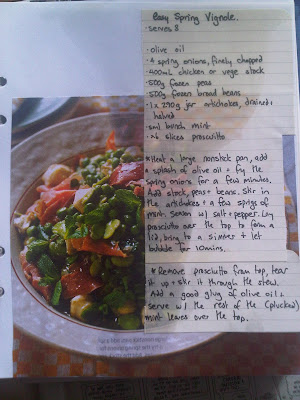 Easy Spring Vignole.
· serves 8
· olive oil
· 4 spring onions, finely chopped
· 400ml chicken or vege stock
· 500g frozen peas
· 500g frozen broad beans
· 1 x 290g jar artichokes, drained +
halved
· sml bunch mint
· x6 slices proscuitto
* Heat a large nonstick pan, add
a splash of olive oil + fry the
spring onions for a few minutes.
Add stock, peas + beans. Stir in
the artichokes + a few sprigs of
mint. Season w/ salt + pepper. Lay
prosciutto over the top to form a
lid, bring to a simmer + let
bubble for 10mins.
* Remove prosciutto from top, tear
it up + stir it through the stew.
Add a good glug of olive oil +
serve w/ the rest of the (plucked)
mint leaves over the top.